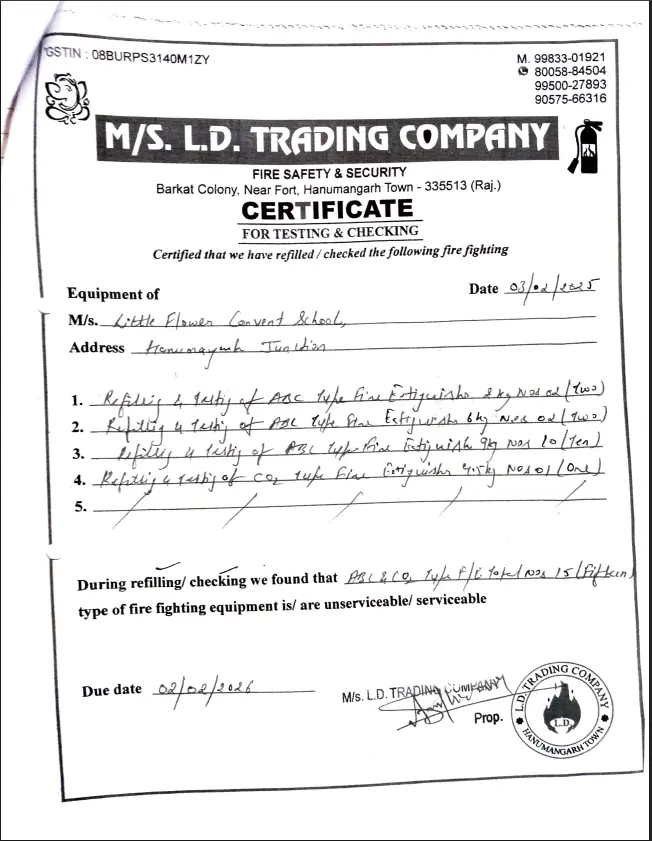 GSTIN : 08BURPS3140M1ZY
M. 99833-01921
80058-84504
99500-27893
90575-66316
M/S. L.D. TRADING COMPANY
FIRE SAFETY & SECURITY
Barkat Colony, Near Fort, Hanumangarh Town - 335513 (Raj.)
CERTIFICATE
FOR TESTING & CHECKING
Certified that we have refilled / checked the following fire fighting
Equipment of
Date 03/02/2025
M/s. Little Flower Convent School,
Address Hanumangarh Junction
1. Refilling & Testing of ABC Type Fire Extinguisher 2 kg Nos 02 (Two)
2. Refilling & Testing of ABC Type Fire Extinguisher 6 kg Nos 02 (Two)
3. Refilling & Testing of ABC Type Fire Extinguisher 9 kg Nos 10 (Ten)
4. Refilling & Testing of CO2 Type Fire Extinguisher 4.5 kg Nos 01 (One)
5.
During refilling/ checking we found that ABC & CO2 Type F/E Total Nos 15 (Fifteen)
type of fire fighting equipment is/ are unserviceable/ serviceable
Due date 02/02/2026
M/s. L.D. TRADING COMPANY
Prop.
L.D. TRADING COMPANY
L.D.
HANUMANGARH TOWN